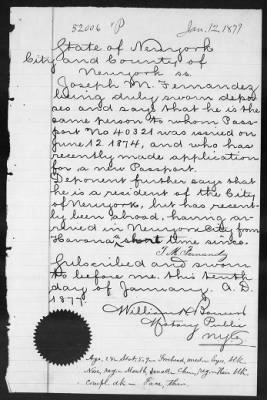 52006
Jan. 12, 1877
State of Newyork
City and County of
Newyork ss.
Joseph M. Fernandez
being duly sworn depo-
ses and says that he is the
same person to whom Pass-
port No 40321 was issued on
June 12 1874, and who has
recently made application
for a new Passport.
Deponent further says that
he is a resident of the City
of Newyork, but has recent-
ly been abroad, having ar-
rived in Newyork City from
Havana a short time since.
J. M. Fernandez
Subscribed and sworn
to before me this tenth
day of January A. D.
1877
William
Notary Public
NYC
Age, 28. Stat. 5.7 in Forehead, med Eyes, blk
Nose, reg Mouth, small Chin, reg Hair blk
Compl. dk Face, thin.